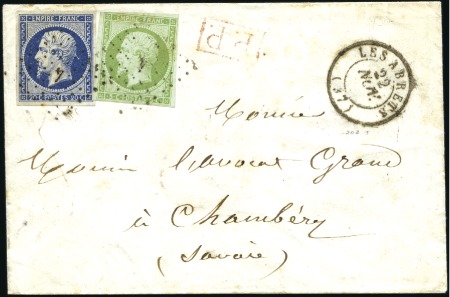 EMPIRE FRANC
EMPIRE FRANC
P.P.
LES ABRETS
22
NOV.
(37)
Monsieur
Monsieur l'avocat Grand
à Chambéry
(Savoie)